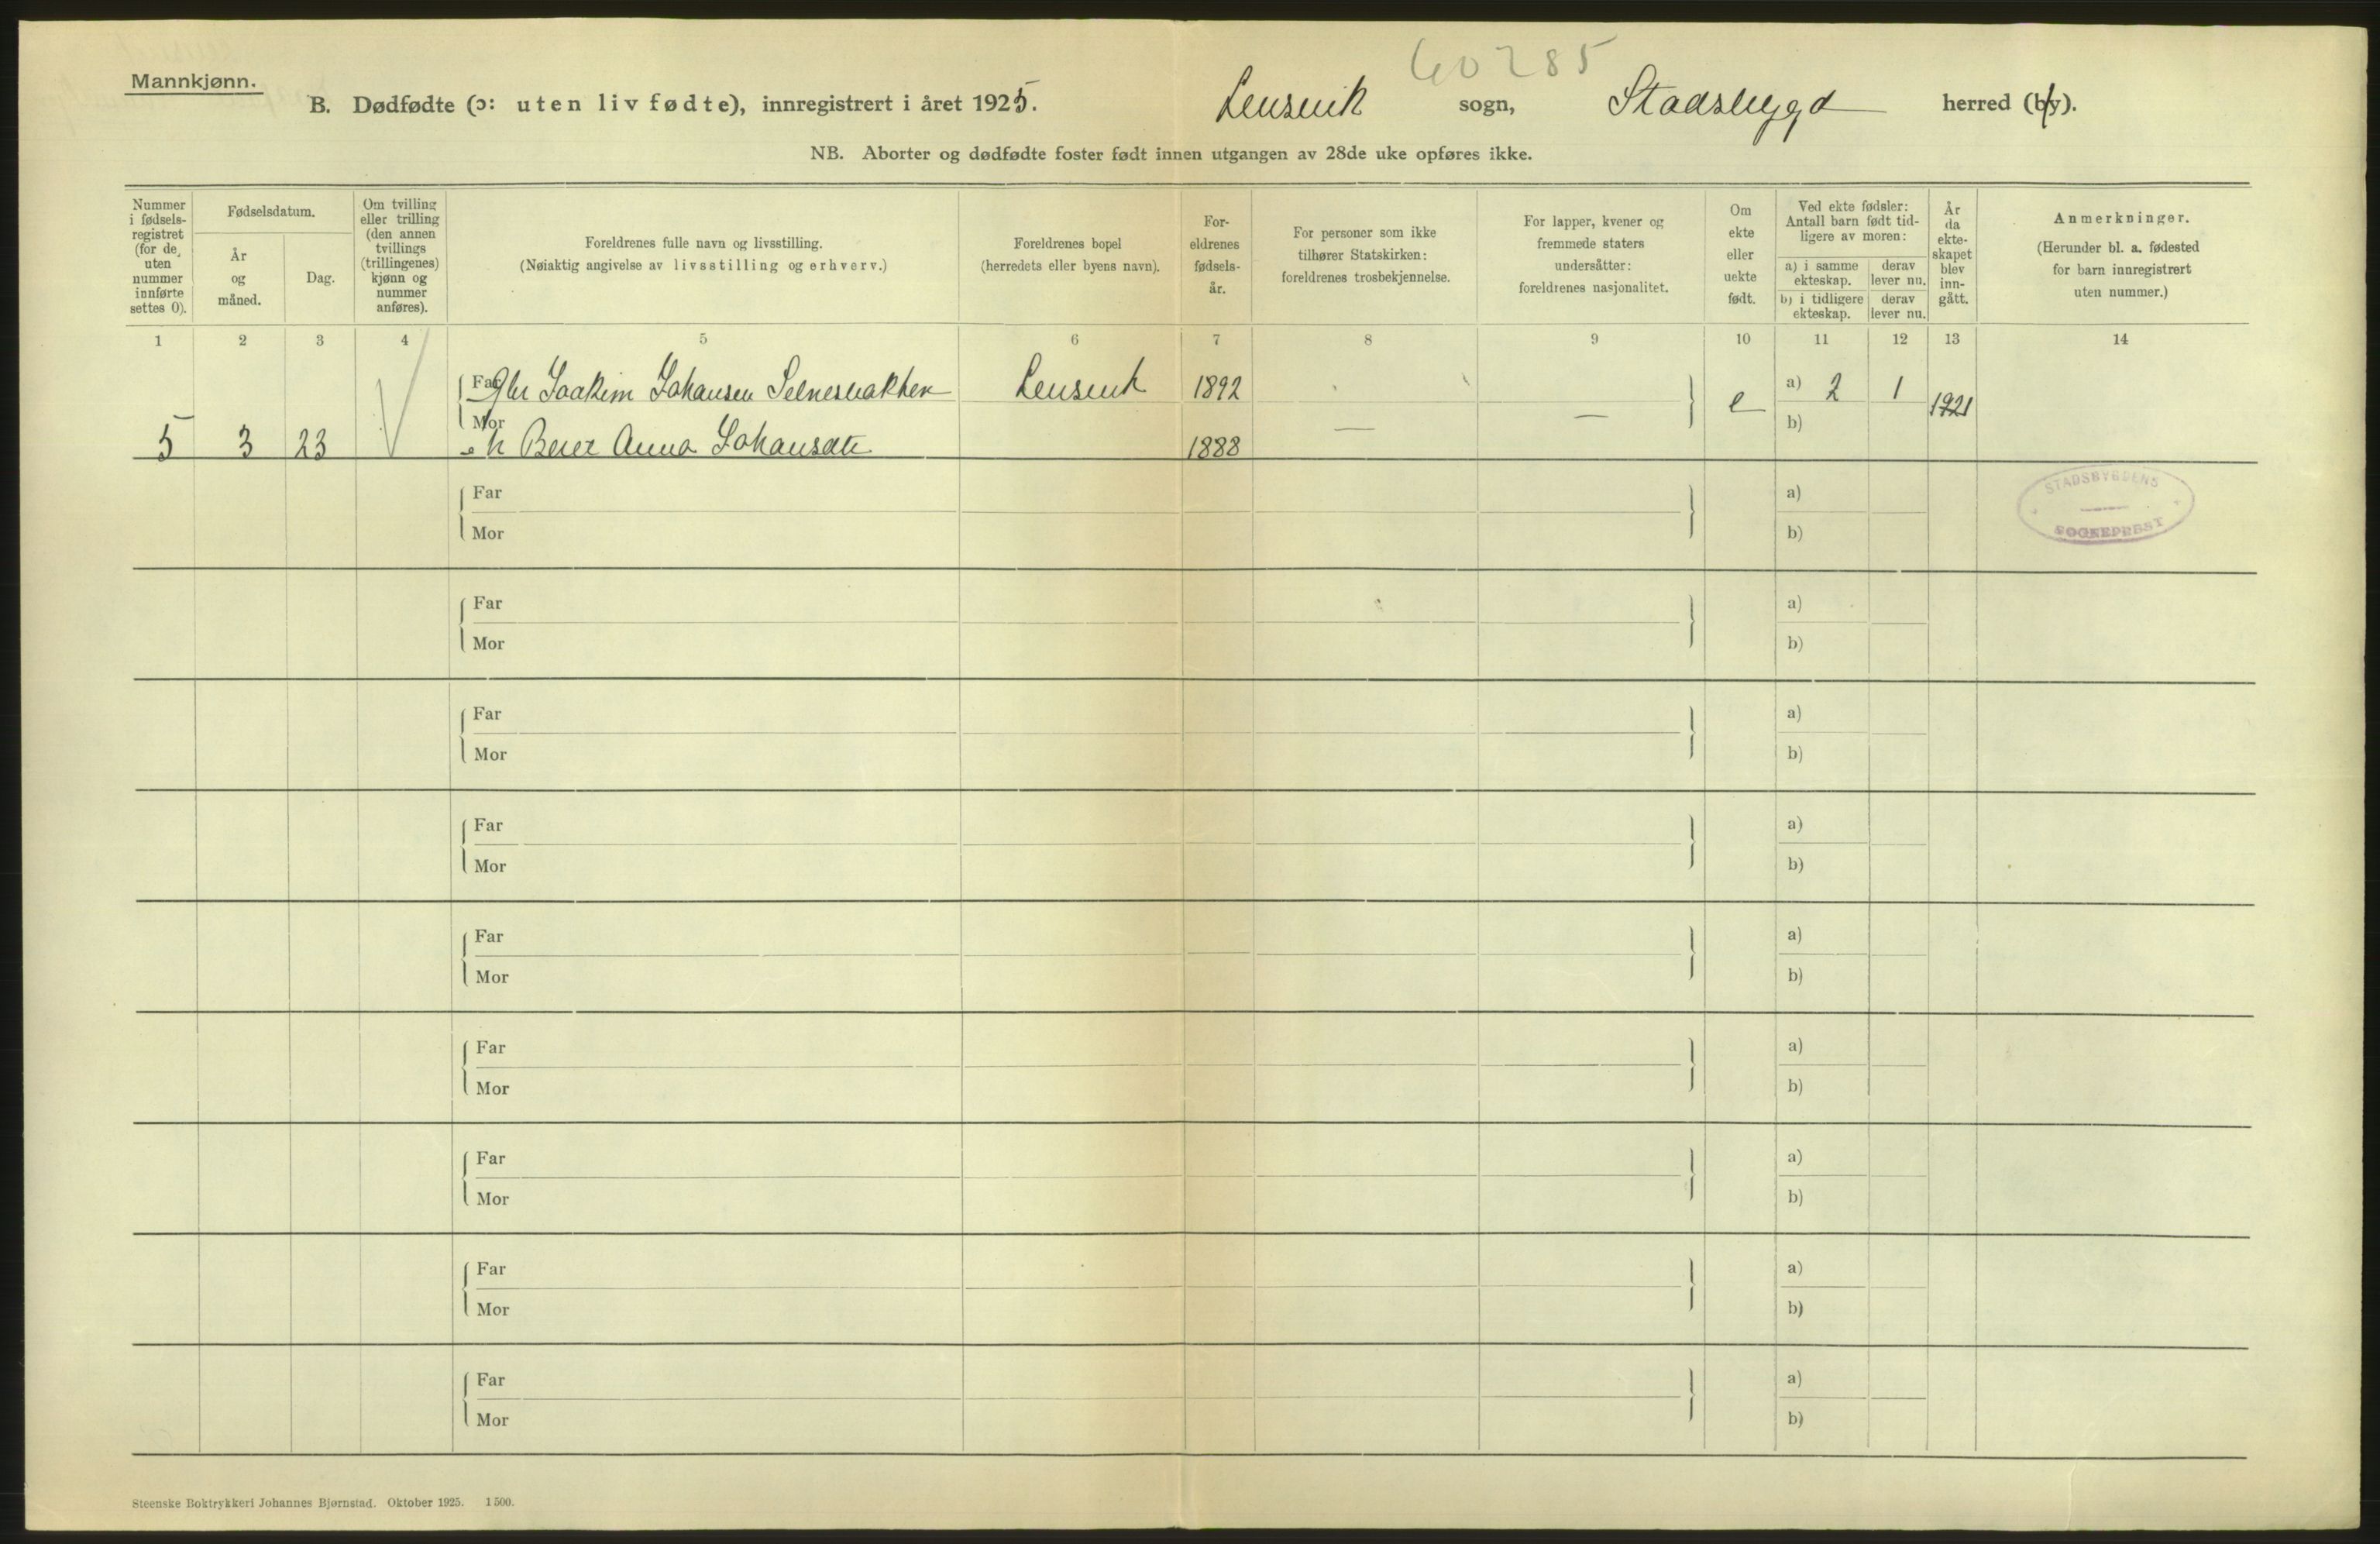 Mannkjønn.
60285
B. Dødfødte (ɔ: uten liv fødte), innregistrert i året 1925. Lensvik sogn, Stadsbygd herred (by).
NB. Aborter og dødfødte foster født innen utgangen av 28de uke opføres ikke.
Nummer i fødsels-registret (for de uten nummer innførte settes 0).
Fødselsdatum.
År og måned.
Dag.
Om tvilling eller trilling (den annen tvillings (trillingenes) kjønn og nummer anføres).
Foreldrenes fulle navn og livsstilling.
(Nøiaktig angivelse av livsstilling og erhverv.)
Foreldrenes bopel
(herredets eller byens navn).
For-eldrenes fødsels-år.
For personer som ikke tilhører Statskirken: foreldrenes trosbekjennelse.
For lapper, kvener og fremmede staters undersåtter: foreldrenes nasjonalitet.
Om ekte eller uekte født.
Ved ekte fødsler: Antall barn født tid-ligere av moren:
a) i samme ekteskap. derav lever nu.
b) i tidligere ekteskap. derav lever nu.
År da ekte-skapet blev inn-gått.
Anmerkninger.
(Herunder bl. a. fødested for barn innregistrert uten nummer.)
1 2 3 4 5 6 7 8 9 10 11 12 13 14
Far Gbr Joakim Johansen Selnesbakken Lensvik 1892 e a) 2 1 1921
5 3 23 Mor Johansdtr 1888 b)
STADSBYGDENS
SOGNEPREST
Far a)
Mor b)
Far a)
Mor b)
Far a)
Mor b)
Far a)
Mor b)
Far a)
Mor b)
Far a)
Mor b)
Far a)
Mor b)
Far a)
Mor b)
Far a)
Mor b)
Steenske Boktrykkeri Johannes Bjørnstad. Oktober 1925. 1500.